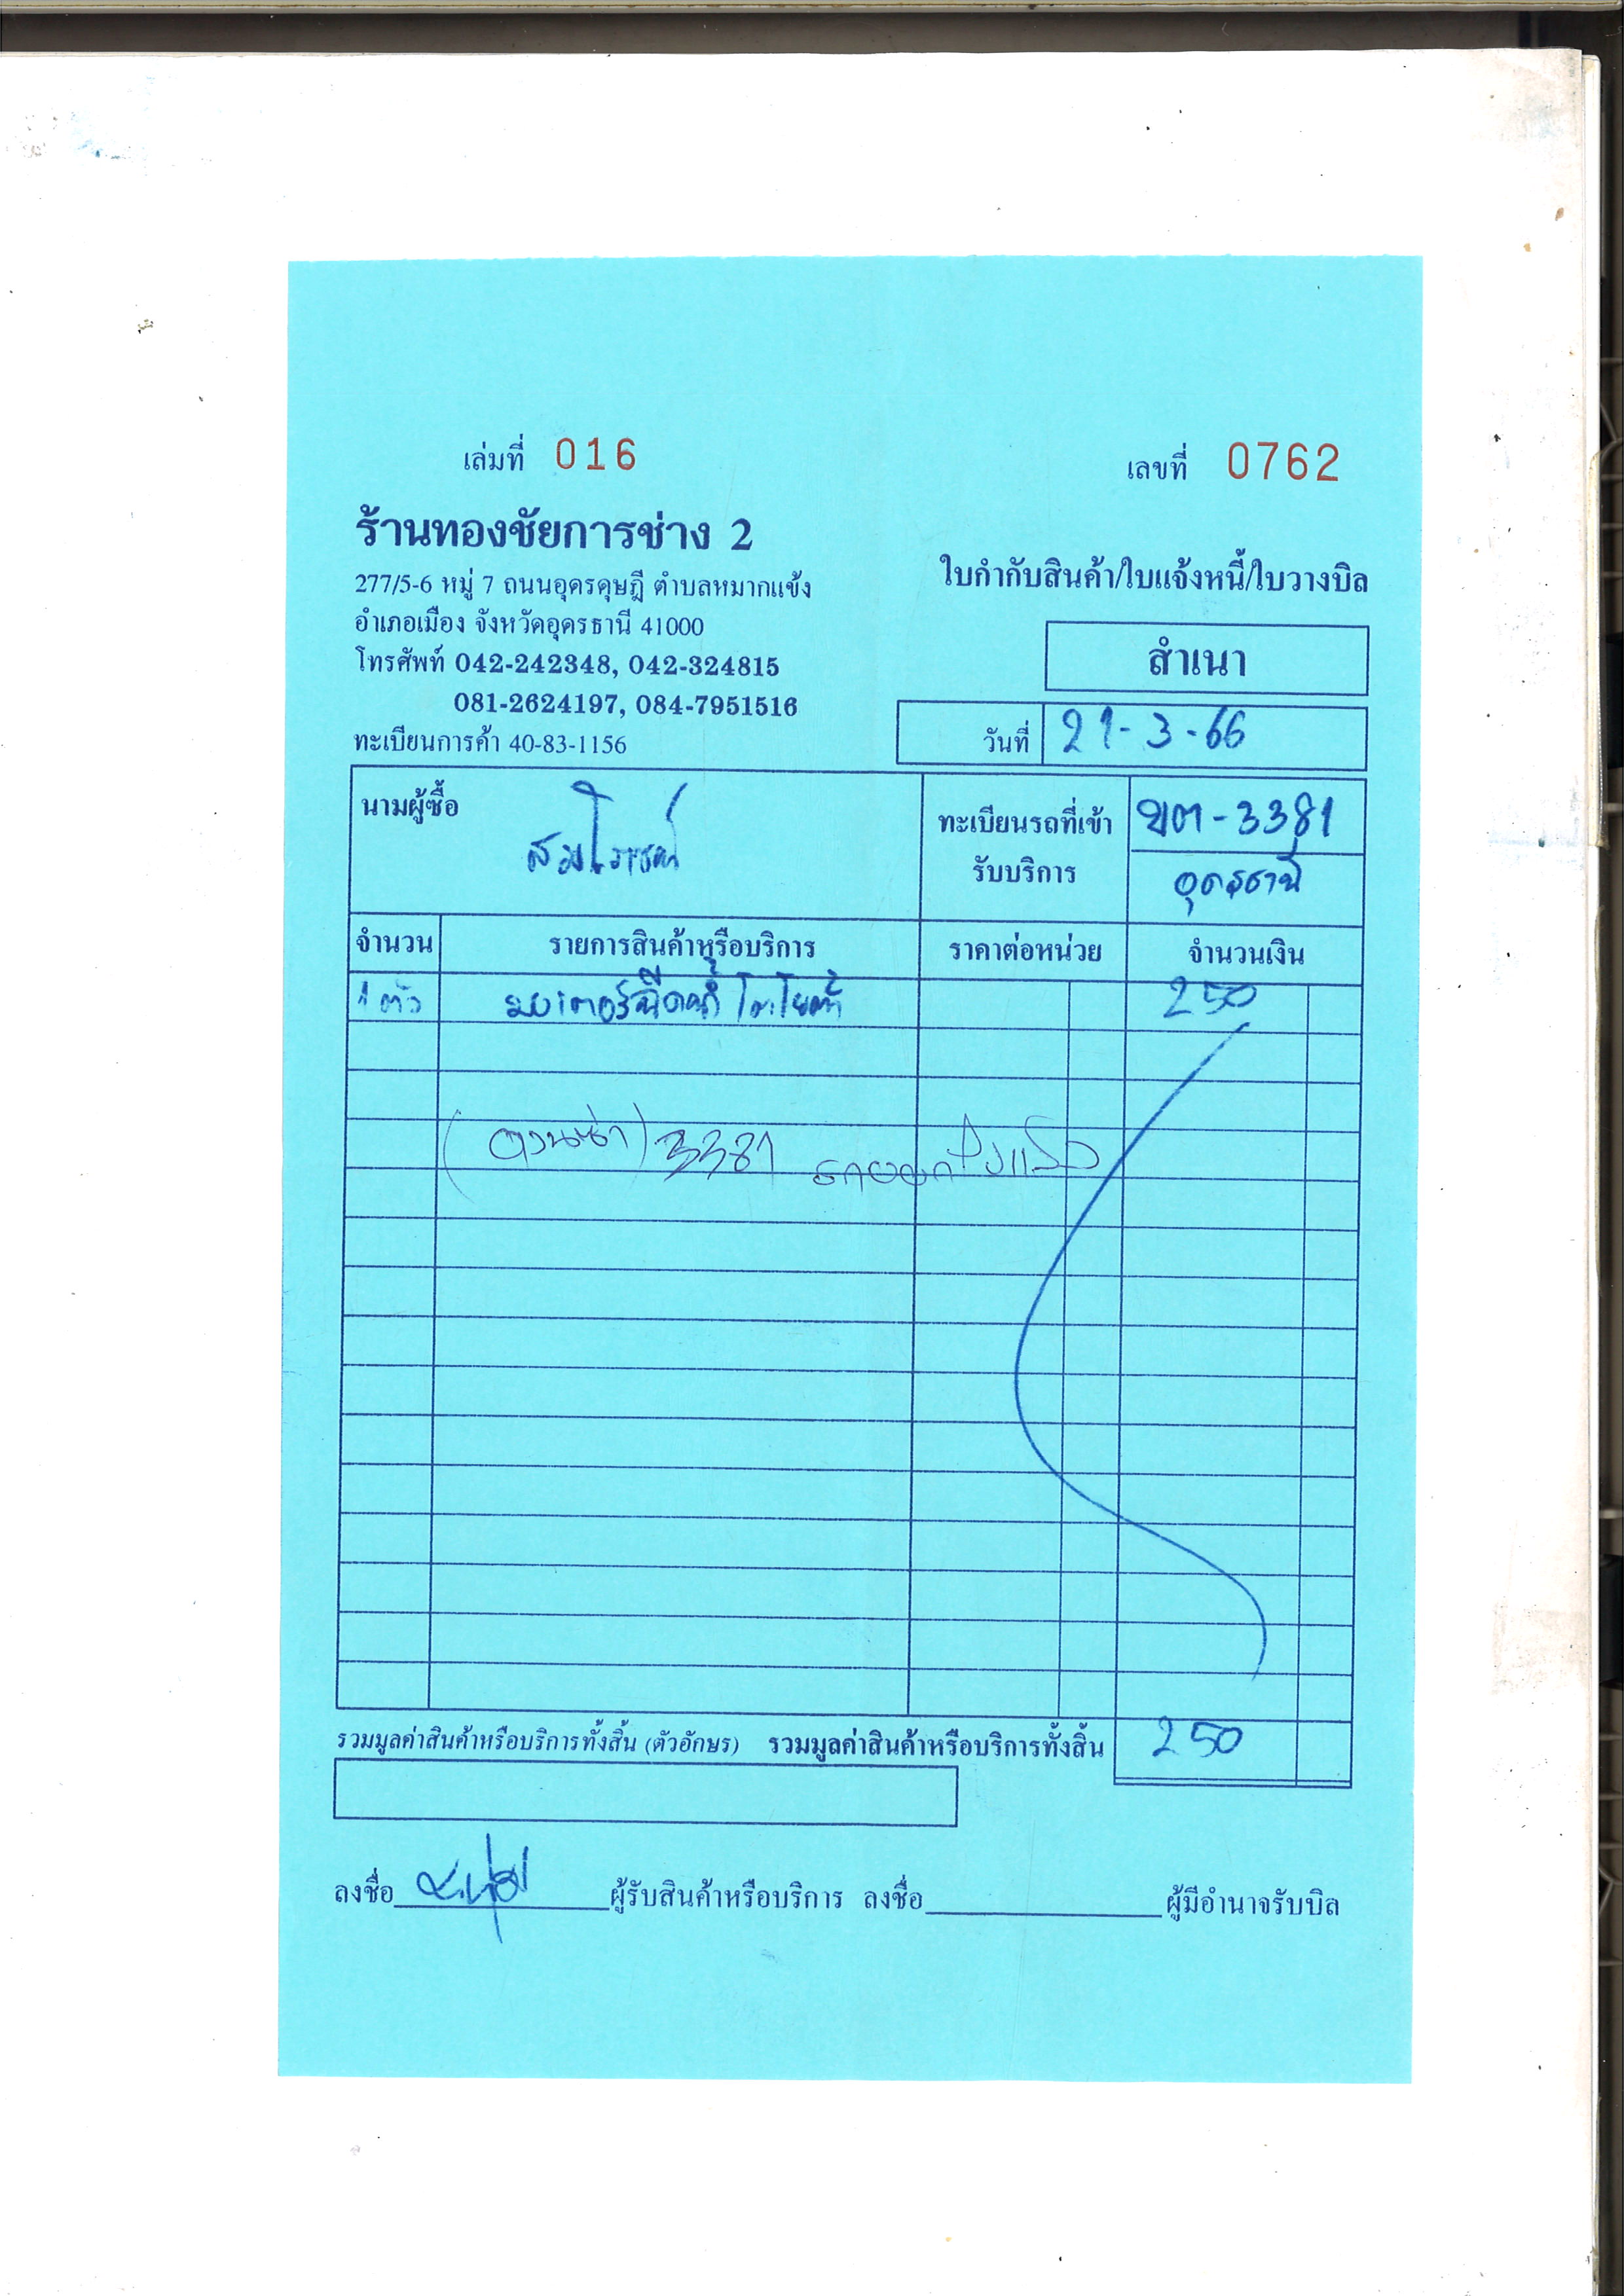 เล่มที่ 016
เลขที่ 0762
ร้านทองชัยการช่าง 2
277/5-6 หมู่ 7 ถนนอุดรดุษฎี ตำบลหมากแข้ง
อำเภอเมือง จังหวัดอุดรธานี 41000
โทรศัพท์ 042-242348, 042-324815
081-2624197, 084-7951516
ทะเบียนการค้า 40-83-1156
ใบกำกับสินค้า/ใบแจ้งหนี้/ใบวางบิล
สำเนา
วันที่ 21-3-66
นามผู้ซื้อ
ทะเบียนรถที่เข้ารับบริการ ขต-3381
อุดรธานี
จำนวน รายการสินค้าหรือบริการ ราคาต่อหน่วย จำนวนเงิน
1 ตัว มอเตอร์ฉีดน้ำ โตโยต้า 250
3381
รวมมูลค่าสินค้าหรือบริการทั้งสิ้น (ตัวอักษร) รวมมูลค่าสินค้าหรือบริการทั้งสิ้น 250
ลงชื่อ ผู้รับสินค้าหรือบริการ ลงชื่อ ผู้มีอำนาจรับบิล